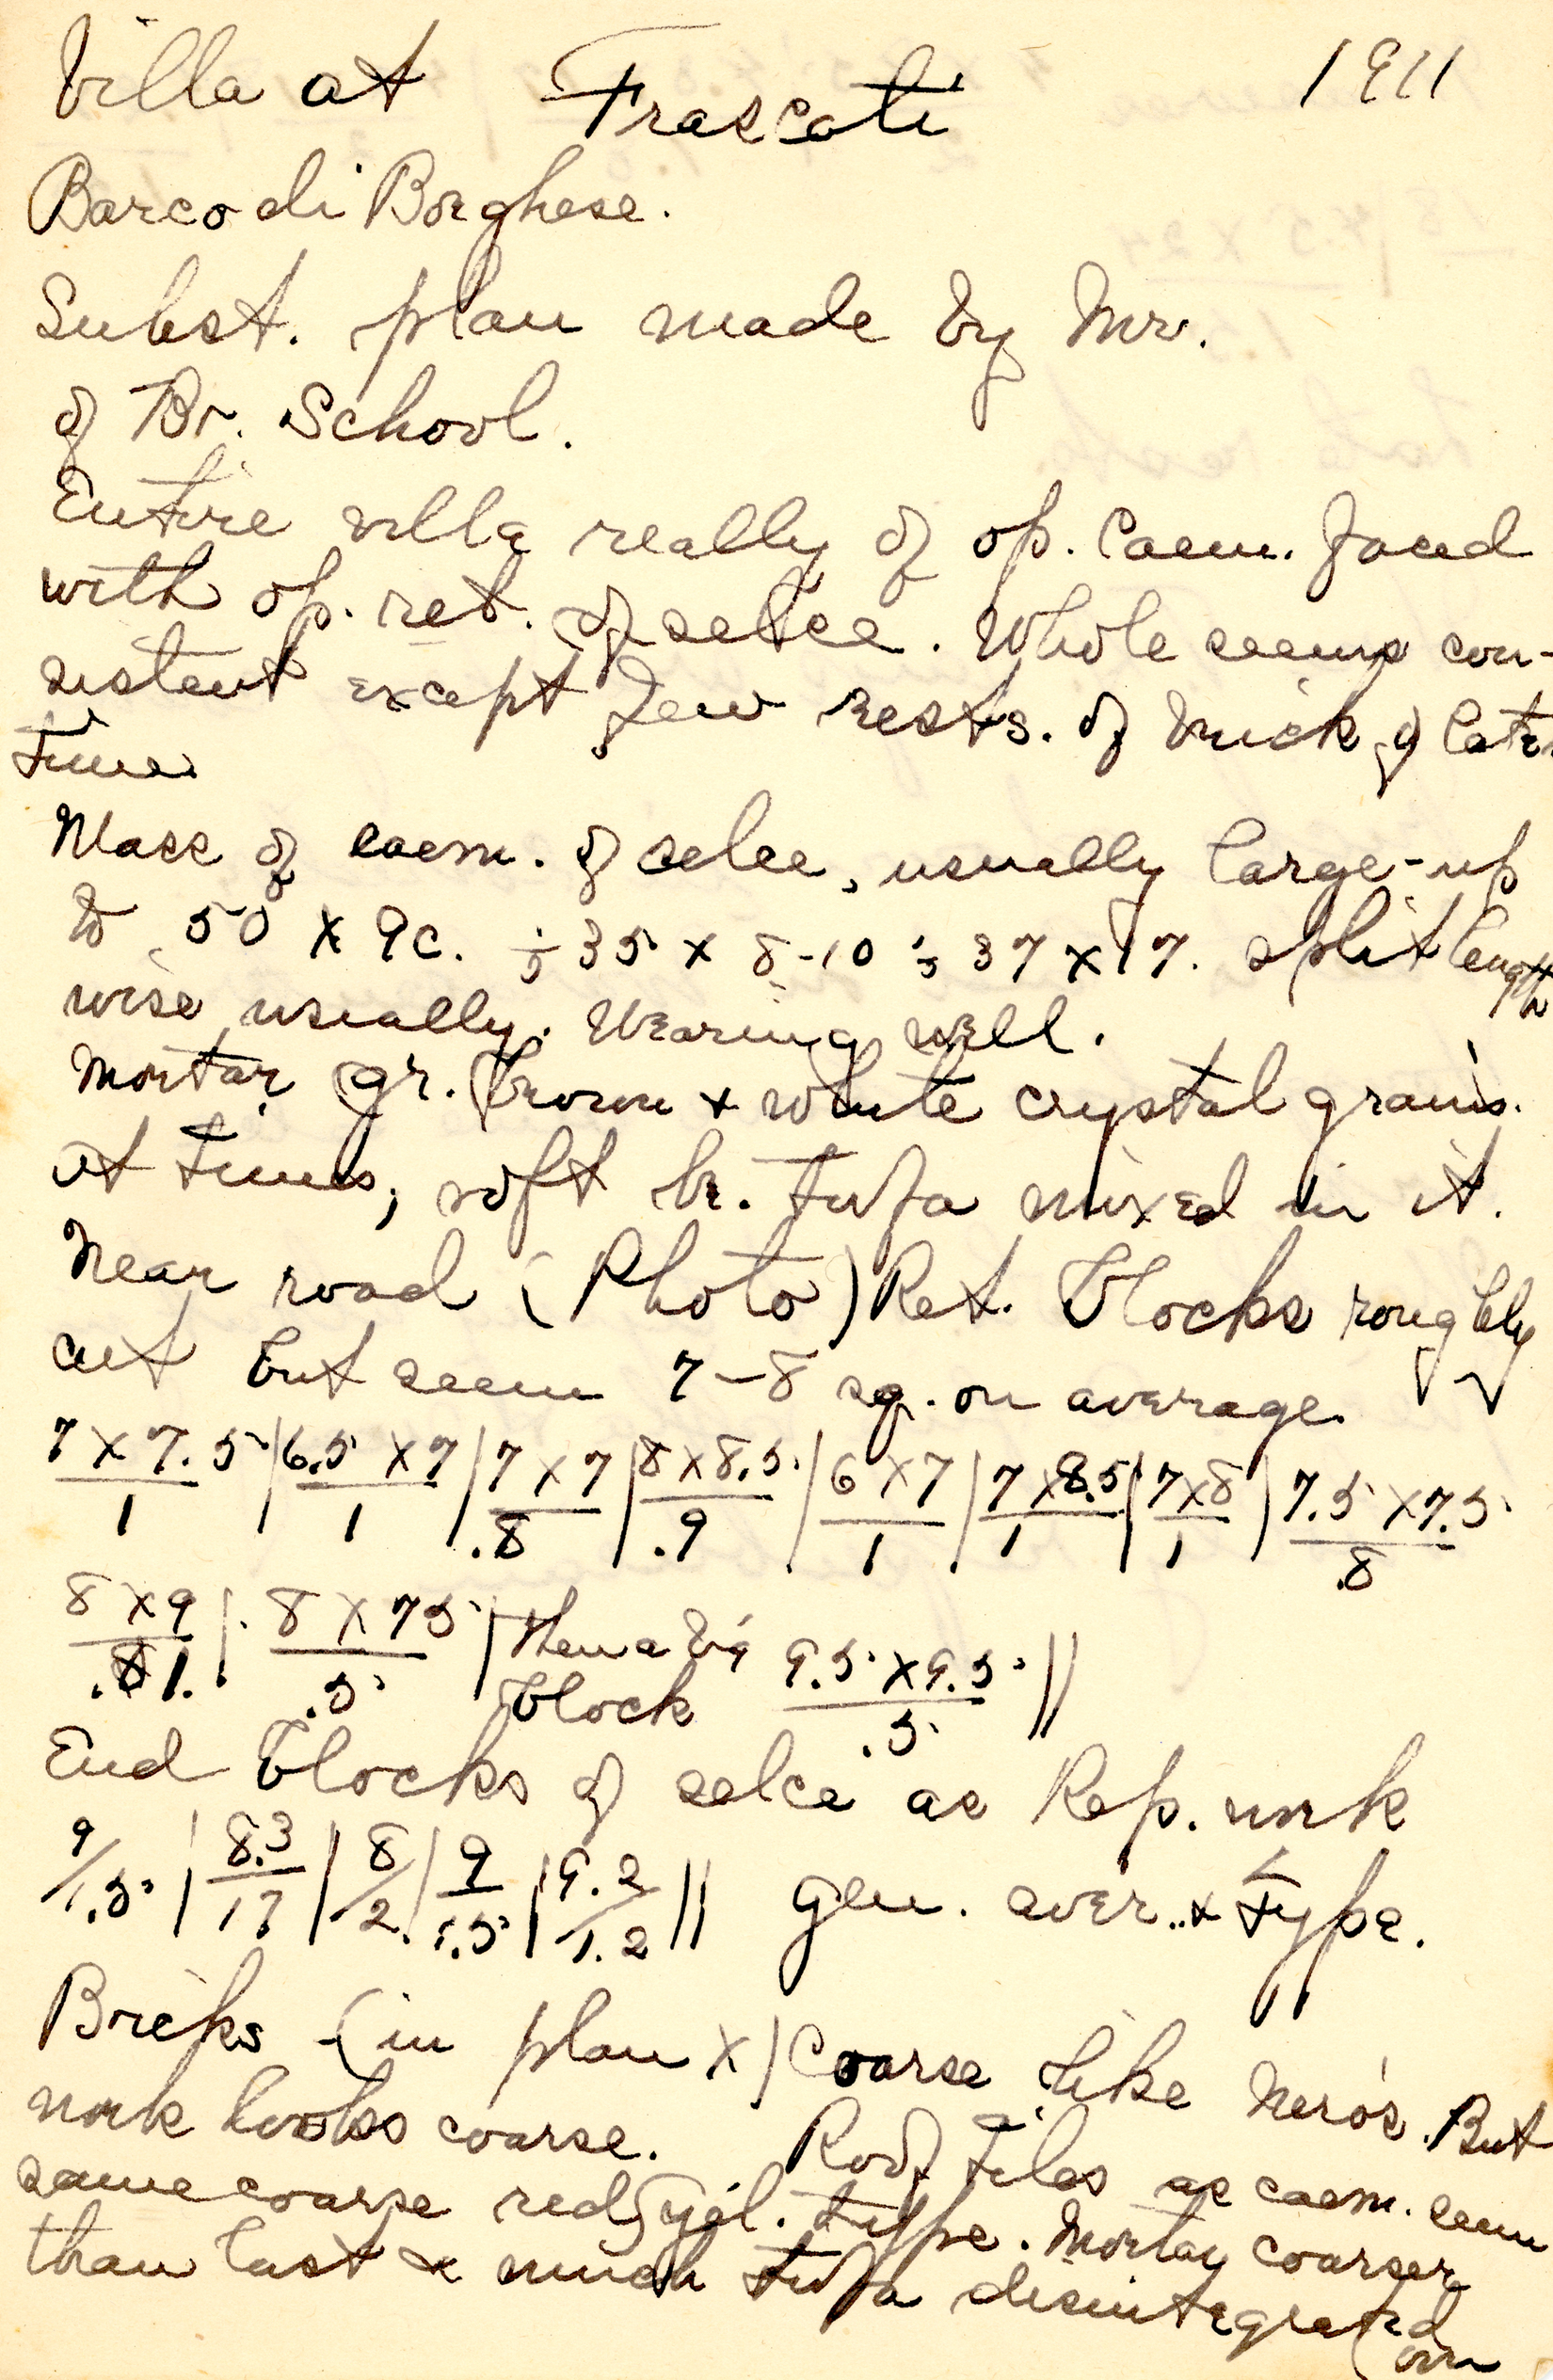 Villa at Frascati 1911
Barco di Borghese.
Subst. plan made by Mr.
of Br. School.
Entire villa really of op. Caem. faced
with op. ret. of selce. Whole seems con-
sistent except few rests. of brick of later
times
Mass of caem. of selce, usually large - up
to 50 x 9c. ; 35 x 8-10 ; 37 x 17. split length
wise usually. Wearing well.
Mortar gr. brown + white crystal grains.
At times, soft br. tufa mixed in it.
Near road (Photo) Ret. blocks roughly
cut but seem 7-8 sq. on average.
7 x 7.5 | 6.5 x 7 | 7 x 7 | 8 x 8.5 | 6 x 7 | 7 x 8.5 | 7 x 8 | 7.5 x 7.5
1 | 1 | .8 | .9 | 1 | 1 | 1 | .8
8 x 9 | 8 x 75 | then a big 9.5 x 9.5 ||
1. | .5 block .5
End blocks of selce as Rep. work
9/1.5 | 8.3/17 | 8/2. | 9/1.5 | 9.2/1.2 || gen. aver. & type.
Bricks - (in plan X) Coarse like Nero's. But
work looks coarse. Roof tiles as caem. seem
same coarse red yel. type. Mortar coarser
than last & much tufa disintegrated